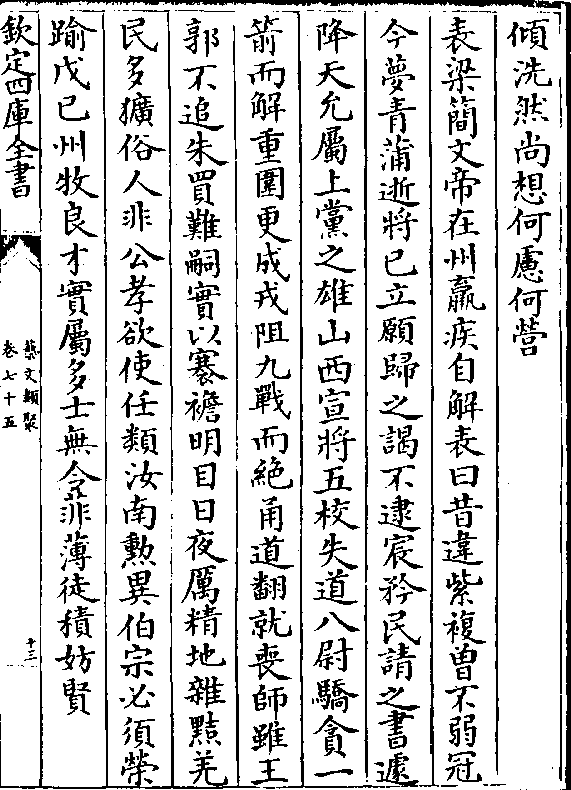 傾洗然尚想何慮何營
表梁簡文帝在州羸疾自解表曰昔違紫複曽不弱冠
今夢青蒲逝將已立願歸之謁不逮宸矜民請之書遽
降天允屬上黨之雄山西宣將五校失道八尉驕貪一
箭而解重圍更成戎阻九戰而絶甬道翻就喪師雖王
郭不追朱買難嗣實以褰襜明目日夜厲精地雜㸃羌
民多獷俗人非公孝欲使任類汝南勲異伯宗必須榮
踰戊已州牧良才實屬多士無令菲薄徒積妨賢
欽定四庫全書
藝文類聚
卷七十五
十三